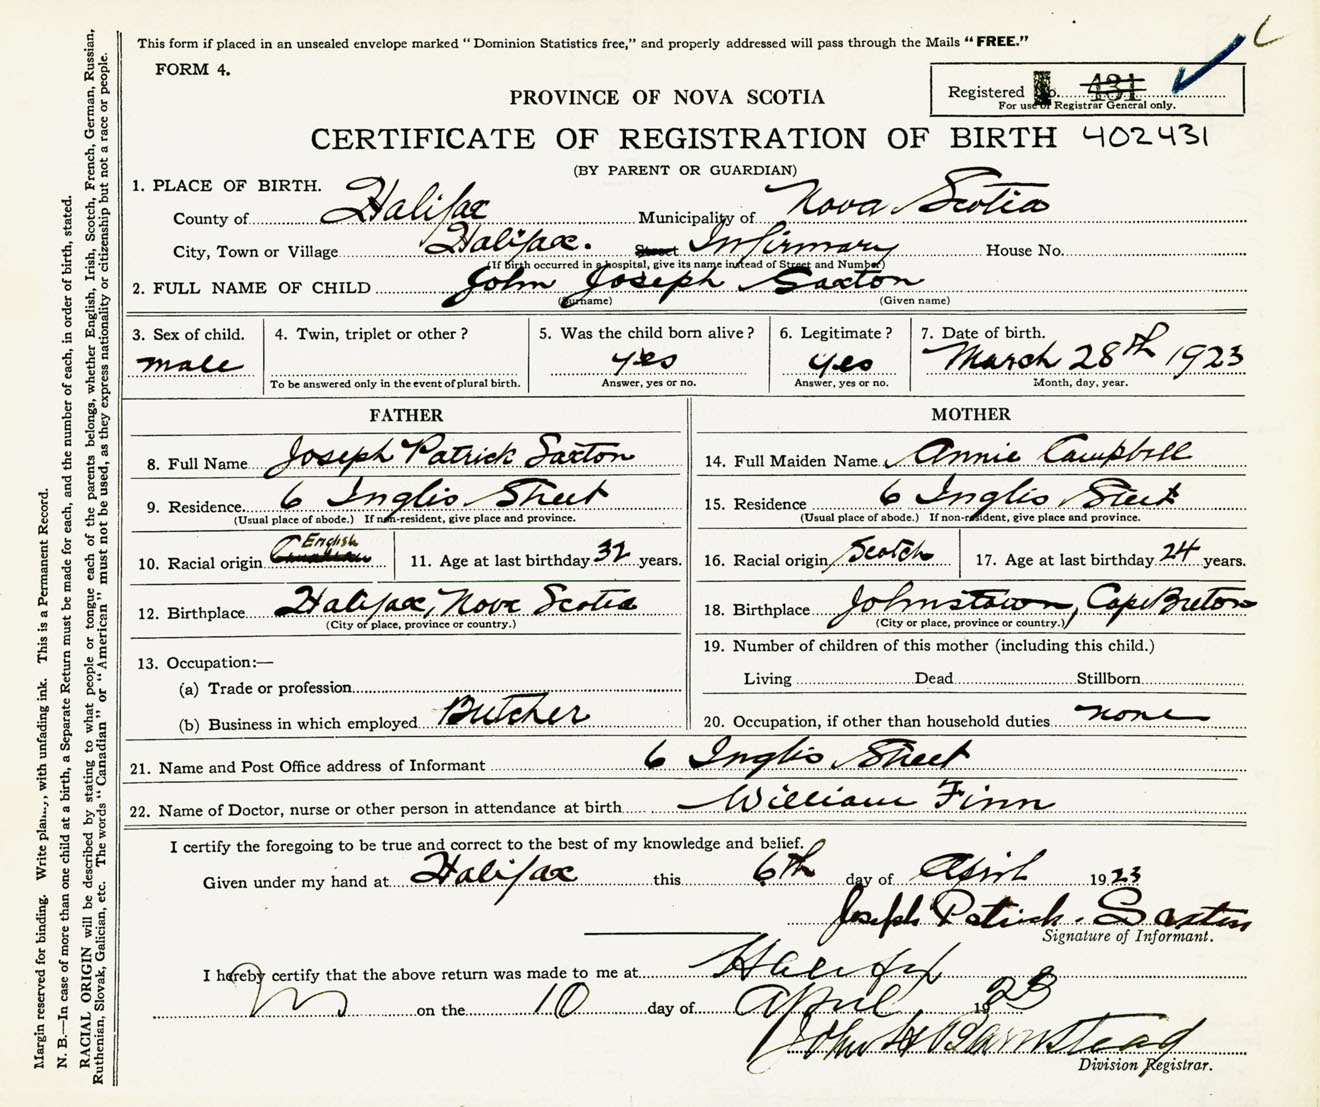 This form if placed in an unsealed envelope marked "Dominion Statistics free," and properly addressed will pass through the Mails "FREE."
FORM 4.
Registered No. 431
For use of Registrar General only.
PROVINCE OF NOVA SCOTIA
CERTIFICATE OF REGISTRATION OF BIRTH 402431
(BY PARENT OR GUARDIAN)
1. PLACE OF BIRTH.
County of Halifax Municipality of Nova Scotia
City, Town or Village Halifax. Street Infirmary House No.
(If birth occurred in a hospital, give its name instead of Street and Number)
2. FULL NAME OF CHILD John Joseph Saxton
(Surname) (Given name)
3. Sex of child. male
4. Twin, triplet or other?
To be answered only in the event of plural birth.
5. Was the child born alive? yes
Answer, yes or no.
6. Legitimate? yes
Answer, yes or no.
7. Date of birth. March 28th 1923
Month, day, year.
FATHER
8. Full Name Joseph Patrick Saxton
9. Residence 6 Inglis Street
(Usual place of abode.) If non-resident, give place and province.
10. Racial origin Canadian English
11. Age at last birthday 32 years.
12. Birthplace Halifax, Nova Scotia
(City or place, province or country.)
13. Occupation:—
(a) Trade or profession
(b) Business in which employed Butcher
MOTHER
14. Full Maiden Name Annie Campbell
15. Residence 6 Inglis Street
(Usual place of abode.) If non-resident, give place and province.
16. Racial origin Scotch
17. Age at last birthday 24 years.
18. Birthplace Johnstown, Cape Breton
(City or place, province or country.)
19. Number of children of this mother (including this child.)
Living Dead Stillborn
20. Occupation, if other than household duties none
21. Name and Post Office address of Informant 6 Inglis Street
22. Name of Doctor, nurse or other person in attendance at birth William Finn
I certify the foregoing to be true and correct to the best of my knowledge and belief.
Given under my hand at Halifax this 6th day of April 1923
Joseph Patrick. Saxton
Signature of Informant.
I hereby certify that the above return was made to me at Halifax
on the 10 day of April 1923
John H Barnstead
Division Registrar.
Margin reserved for binding. Write plainly, with unfading ink. This is a Permanent Record.
N. B.—In case of more than one child at a birth, a Separate Return must be made for each, and the number of each, in order of birth, stated.
RACIAL ORIGIN will be described by stating to what people or tongue each of the parents belongs, whether English, Irish, Scotch, French, German, Russian,
Ruthenian, Slovak, Galician, etc. The words "Canadian" or "American" must not be used, as they express nationality or citizenship but not a race or people.